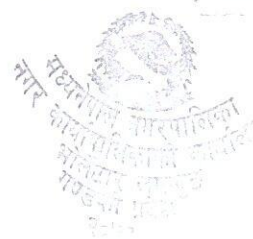 मध्यनेपाल नगरपालिका
नगर कार्यपालिकाको कार्यालय
भोर्लेटार लमजुङ
गण्डकी प्रदेश